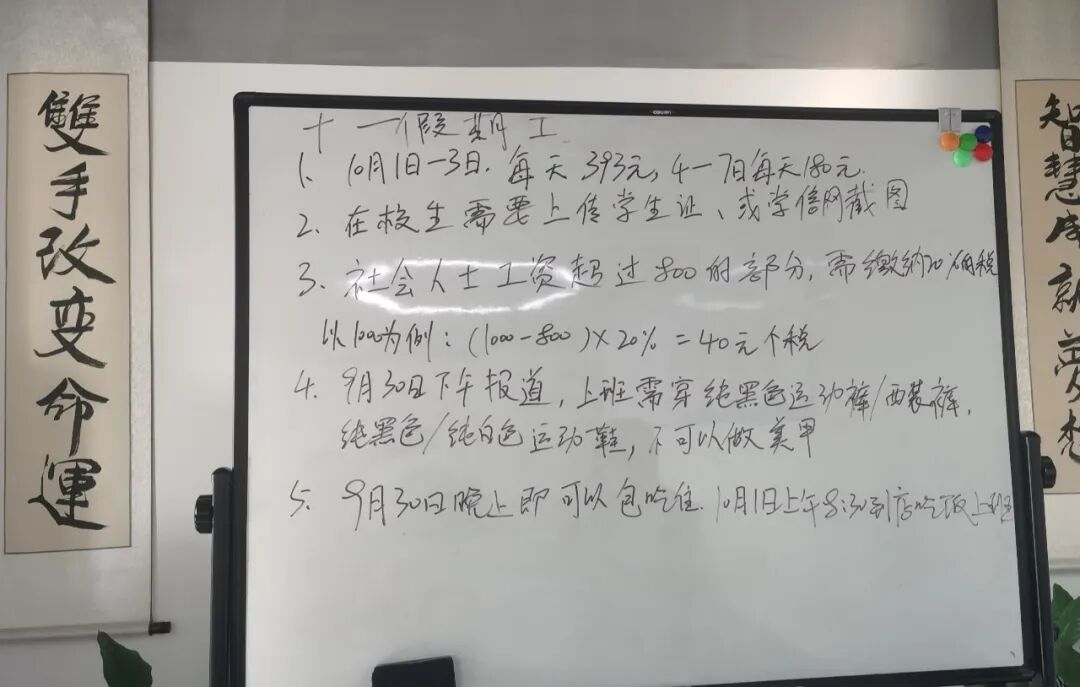 雙手改變命運
十一假期工
1、10月1日-3日，每天393元，4-7日每天180元.
2、在校生需要上传学生证、或学信网截图
3、社会人士工资超过800的部分，需缴纳20%个税
以1000为例：(1000-800)×20%=40元个税
4、9月30日下午报道，上班需穿纯黑色运动裤/西装裤，
纯黑色/纯白色运动鞋，不可以做美甲
5、9月30日晚上即可以包吃住.10月1日上午8:30到店吃饭上班
智慧成就夢想
deli